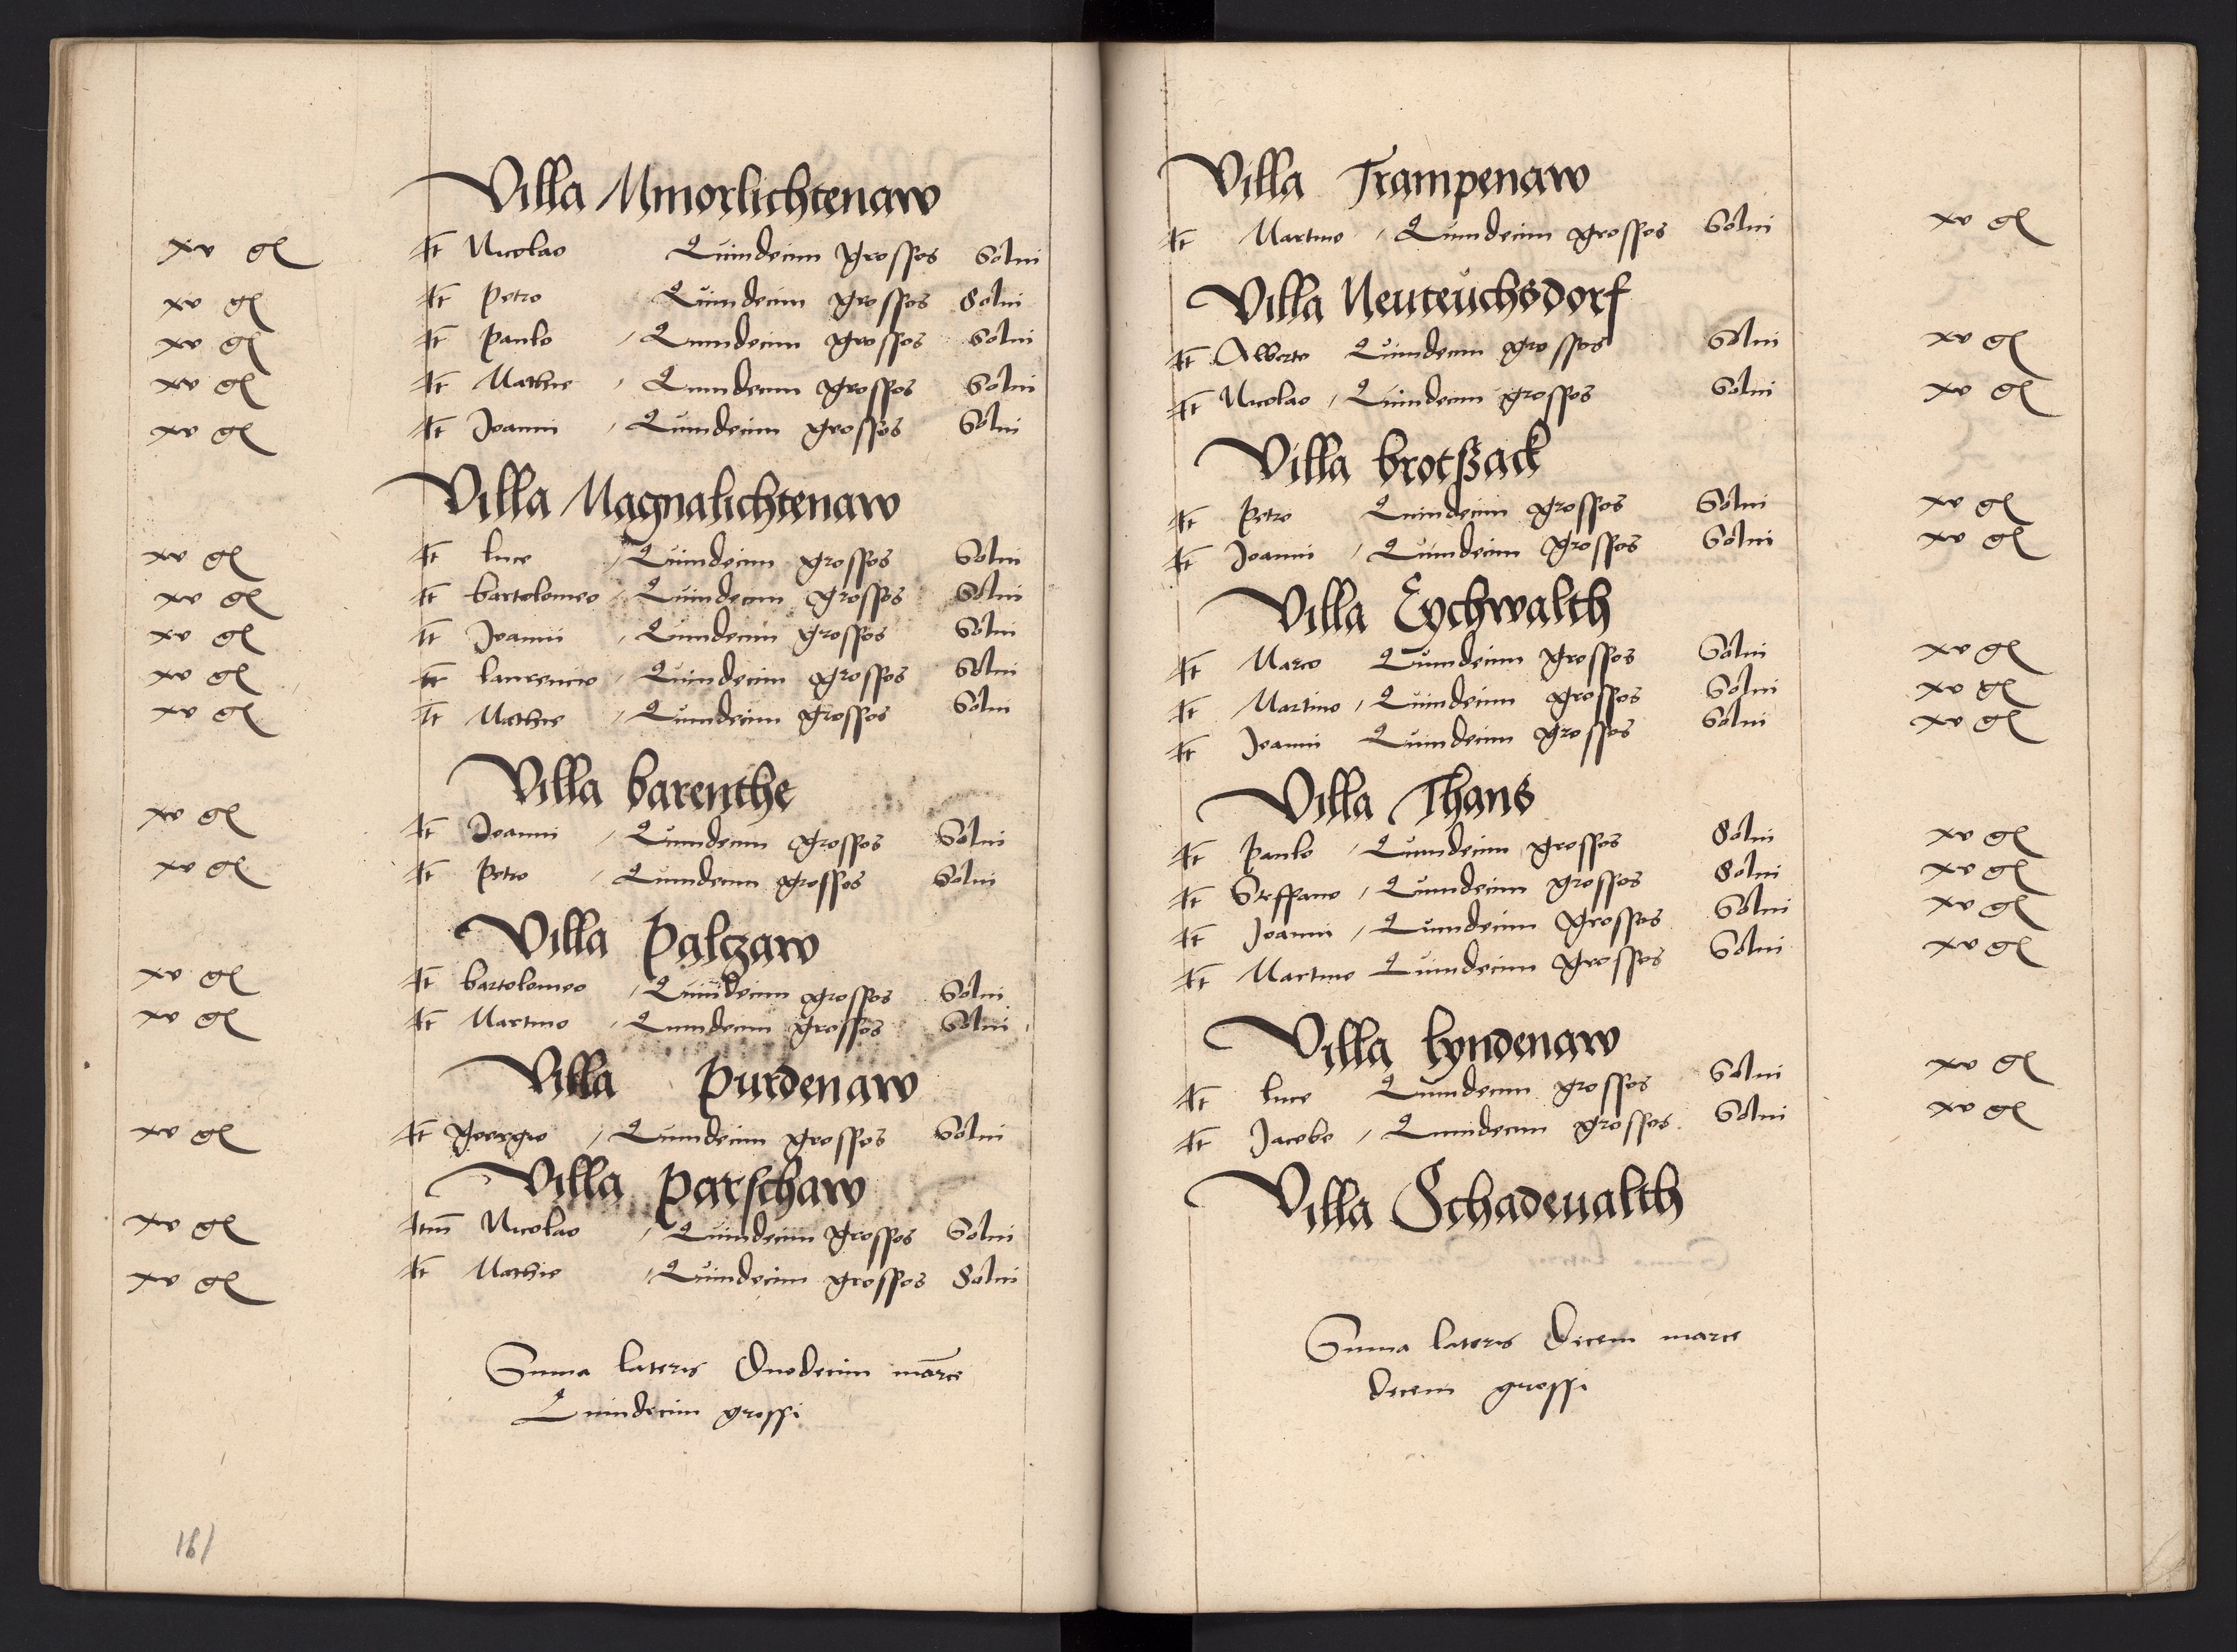 Villa Minorlichtenaw
xv gl It Nicolao Quindecim grossos Solui
xv gl It Petro Quindecim grossos Solui
xv gl It Paulo / Quindecim grossos Solui
xv gl It Mathie / Quindecim grossos Solui
xv gl It Joanni / Quindecim grossos Solui
Villa Magnalichtenaw
xv gl It luce / Quindecim grossos Solui
xv gl It bartolomeo / Quindecim grossos Solui
xv gl It Joanni / Quindecim grossos Solui
xv gl It laurencio / Quindecim grossos Solui
xv gl It Mathie / Quindecim grossos Solui
Villa barenthe
xv gl It Joanni / Quindecim grossos Solui
xv gl It Petro / Quindecim grossos Solui
Villa Palczaw
xv gl It bartolomeo / Quindecim grossos Solui
xv gl It Martino / Quindecim grossos Solui
Villa Purdenaw
xv gl It georgio / Quindecim grossos Solui
Villa Parschaw
xv gl Itm Nicolao / Quindecim grossos Solui
xv gl It Mathie / Quindecim grossos Solui
Suma lateris Duodecim marce
Quindecim grossi
181
Villa Trampenaw
It Martino / Quindecim grossos Solui xv gl
Villa Neuteuchsdorf
It Alberto Quindecim grossos Solui xv gl
It Nicolao / Quindecim grossos Solui xv gl
Villa brotßack
It Petro Quindecim grossos Solui xv gl
It Joanni / Quindecim grossos Solui xv gl
Villa Eychwalth
It Marco Quindecim grossos Solui xv gl
It Martino / Quindecim grossos Solui xv gl
It Joanni Quindecim grossos Solui xv gl
Villa Thans
It Paulo / Quindecim grossos Solui xv gl
It Steffano / Quindecim grossos Solui xv gl
It Joanni / Quindecim grossos Solui xv gl
It Martino Quindecim grossos Solui xv gl
Villa lyndenaw
It luce Quindecim grossos Solui xv gl
It Jacobo / Quindecim grossos Solui xv gl
Villa Schadeualth
Suma lateris Decem marce
decem grossi